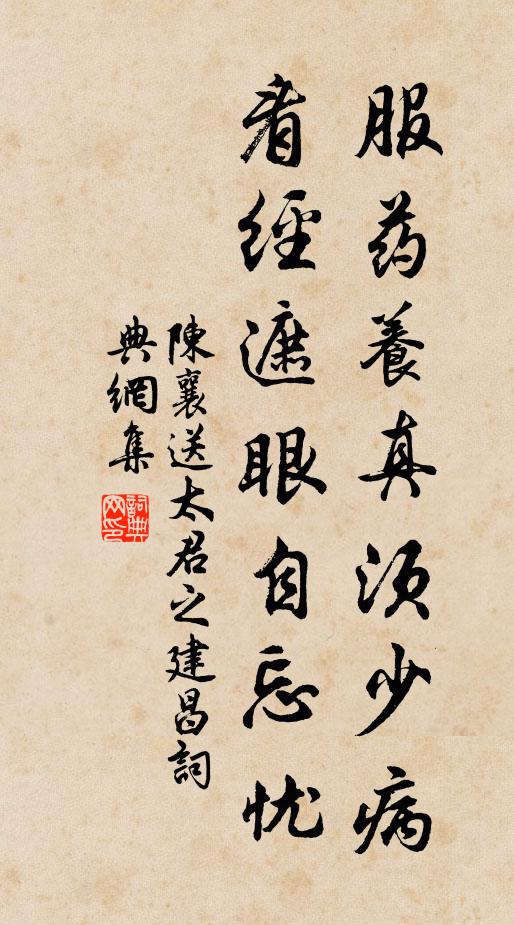 服药養真须少病
看經遮眼自忘忧
陳襄送太君之建昌詞
典網集
詞典網印